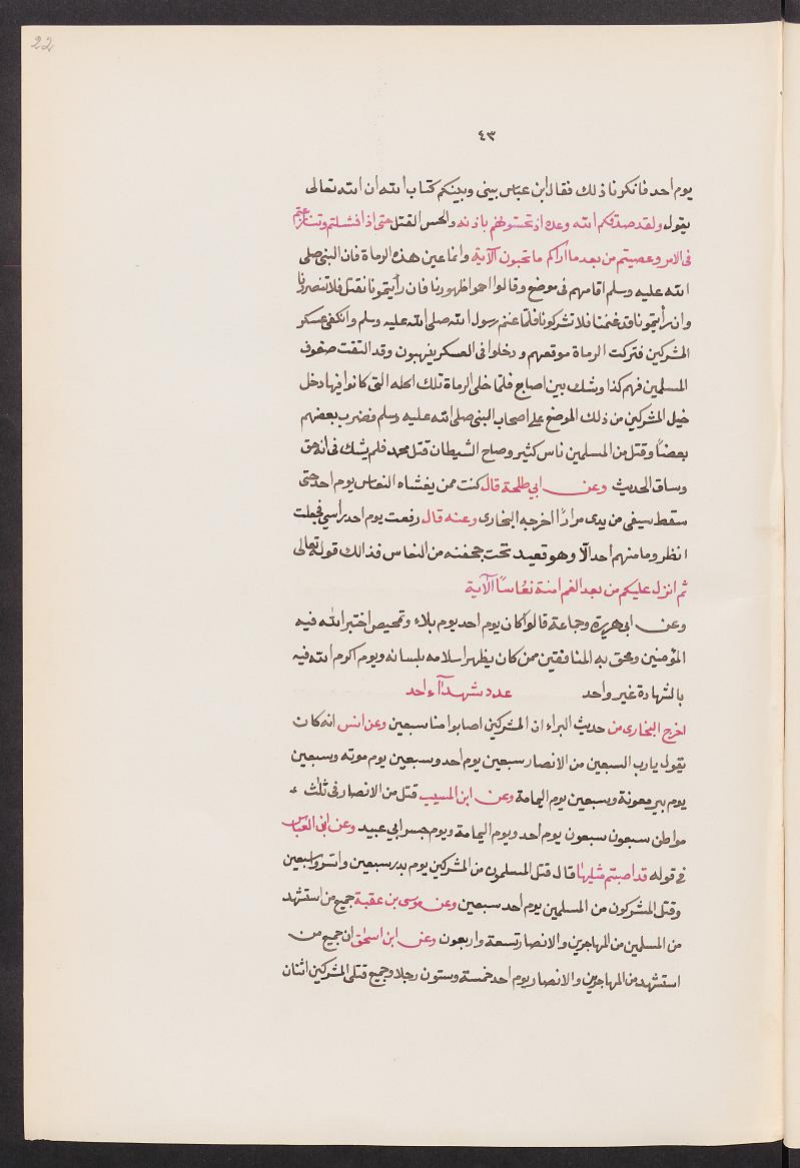 22
٤٣
يوم احد فانكرنا ذلك فقال ابن عباس بينى وبينكم كتاب الله ان الله تعالى
يقول ولقد صدقكم الله وعده اذ تحسونهم باذنه والحس القتل حتى اذا فشلتم وتنازعتم
فى الامر وعصيتم من بعد ما اراكم ما تحبون الآية وانما عين هذه الرماة فان النبى صلى
الله عليه وسلم اقامهم فى موضع وقالوا احوا ظهورنا فان رأيتمونا نقتل فلا تنصرونا
وان رأيتمونا قد غنمنا فلا تشركونا فلمّا غنم رسول الله صلى الله عليه وسلم وانكفى عسكر
المشركين فتركت الرماة موقعهم و دخلوا فى العسكر ينهبون وقد التقت صفوف
المسلمين فهم كذا وشك بين اصابع فلمّا خلى الرماة تلك الحله التى كانوا فيها دخل
خيل المشركين من ذلك الموضع على اصحاب النبى صلى الله عليه وسلم فضرب بعضهم
بعضاً وقتل من المسلمين ناس كثير وصاح الشيطان قتل محمد فلم يشك فى انه حق
وساق الحديث وعن ابي طلحة قال كنت ممن يغشاه النعاس يوم احد حتى
سقط سيفى من يدى مراراً اخرجه البخارى وعنه قال رفعت يوم احد برأسي فجعلت
انظر وما منهم احد الّا وهو قعيد تحت جحفته من النعاس فذالك قوله تعالى
ثم انزل عليكم من بعد الغم امنة نعُاسًا الآية
وعن ابى هريرة وجماعة قالوا كان يوم احد يوم بلاء وتمحيص اختبر الله فيه
المؤمنين ومحق به المنافقين ممن كان يظهر اسلامه بلسانه ويوم اكرم الله فيه
بالشهادة غير واحد عدد شهدآء احد
اخرج البخارى من حديث البراء ان المشركين اصابوا منا سبعين وعن انس انه كان
يقول يارب السبعين من الانصار سبعين يوم احد وسبعين يوم موته وسبعين
يوم بير معونة وسبعين يوم اليمامة وعن ابن المسيب قتل من الانصار فى ثلٰث
مواطن سبعون سبعون يوم أحد ويوم اليمامة ويوم جسر ابي عبيد وعن ابى العباس
فى قوله قد اصبتم مثليها قال قتل المسلمون من المشركين يوم بدر سبعين واسروا سبعين
وقتل المشركون من المسلمين يوم احد سبعين وعن موسى بن عقبة جميع من استشهد
من المسلمين من المهاجرين والانصار تسعة واربعون وعن ابن اسحٰق ان جميع من
استشهد من المهاجرين والانصار يوم احد خمسة وستون رجلا وجميع قتلى المشركين اثنان